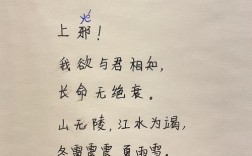 yé
上邪！
我欲与君相知，
长命无绝衰。
山无陵，江水为竭，
冬雷震震 夏雨雪